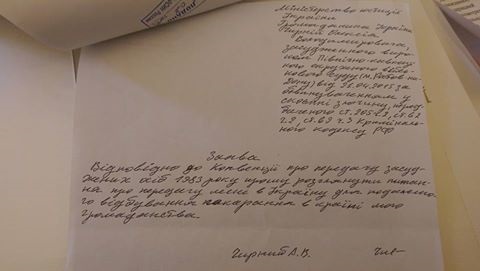 Міністерство юстиції
України
Громадянина України
Чирній Олексія
Володимировича,
засудженного виро-
ком Північно-Кавказь-
кого окружного військо-
вого суду (м. Ростов на
Дону) від 21.04.2015 за
обвинуваченням у
скоєнні злочину, перед-
баченого ст. 205 ч.2, ст.
ч.2, ст. 63 ч.3 Кримінань-
ного кодексу РФ
Заява
Відповідно до Конвенції про передачу засуд-
жених від 1983 року прошу розглянути питан-
ня про передачу мене в Україну для подальшо-
го відбування покарання в країні мого
громадянства.
Чирній А.В.